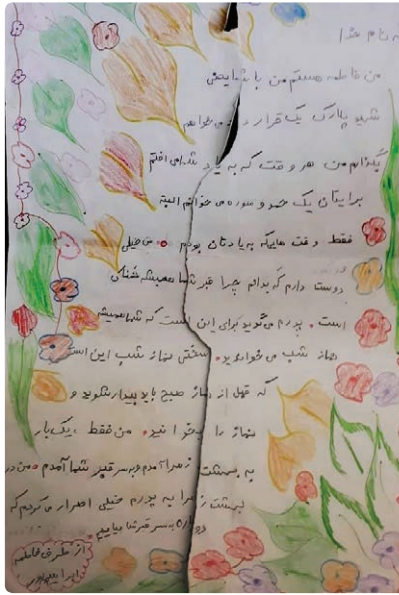 به نام خدا
من فاطمه هستم من با شما یعنی
شهید پلارک یک قرار می خواهم
بگذارم من هر وقت که به یاد شما می افتم
برایتان یک حمد و سوره می خوانم البته
فقط وقت هایی که به یادتان بودم • من خیلی
دوست دارم که بدانم چرا قبر شما همیشه خنک
است • پدرم می گوید برای این است که شما همیشه
نماز شب می خواندید • سختی نماز شب این است
که قبل از نماز صبح باید بیدار شوید و
نماز را بخوانید • من فقط یک بار
به بهشت زهرا آمدم و به سر قبر شما آمدم • من در
بهشت زهرا به پدرم خیلی اصرار می کردم که
دوباره به سر قبر شما بیاییم
از طرف فاطمه